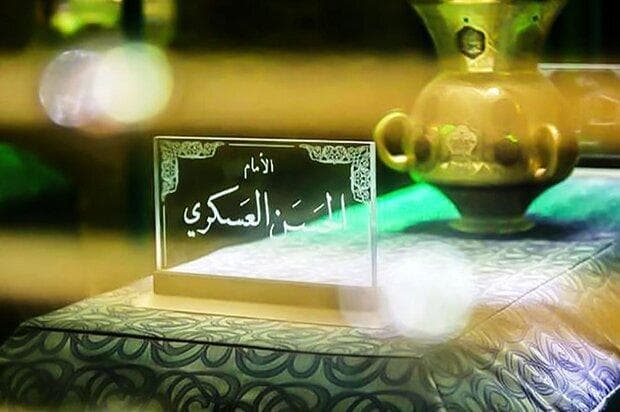 الأمام
الحَسَن العَسكري